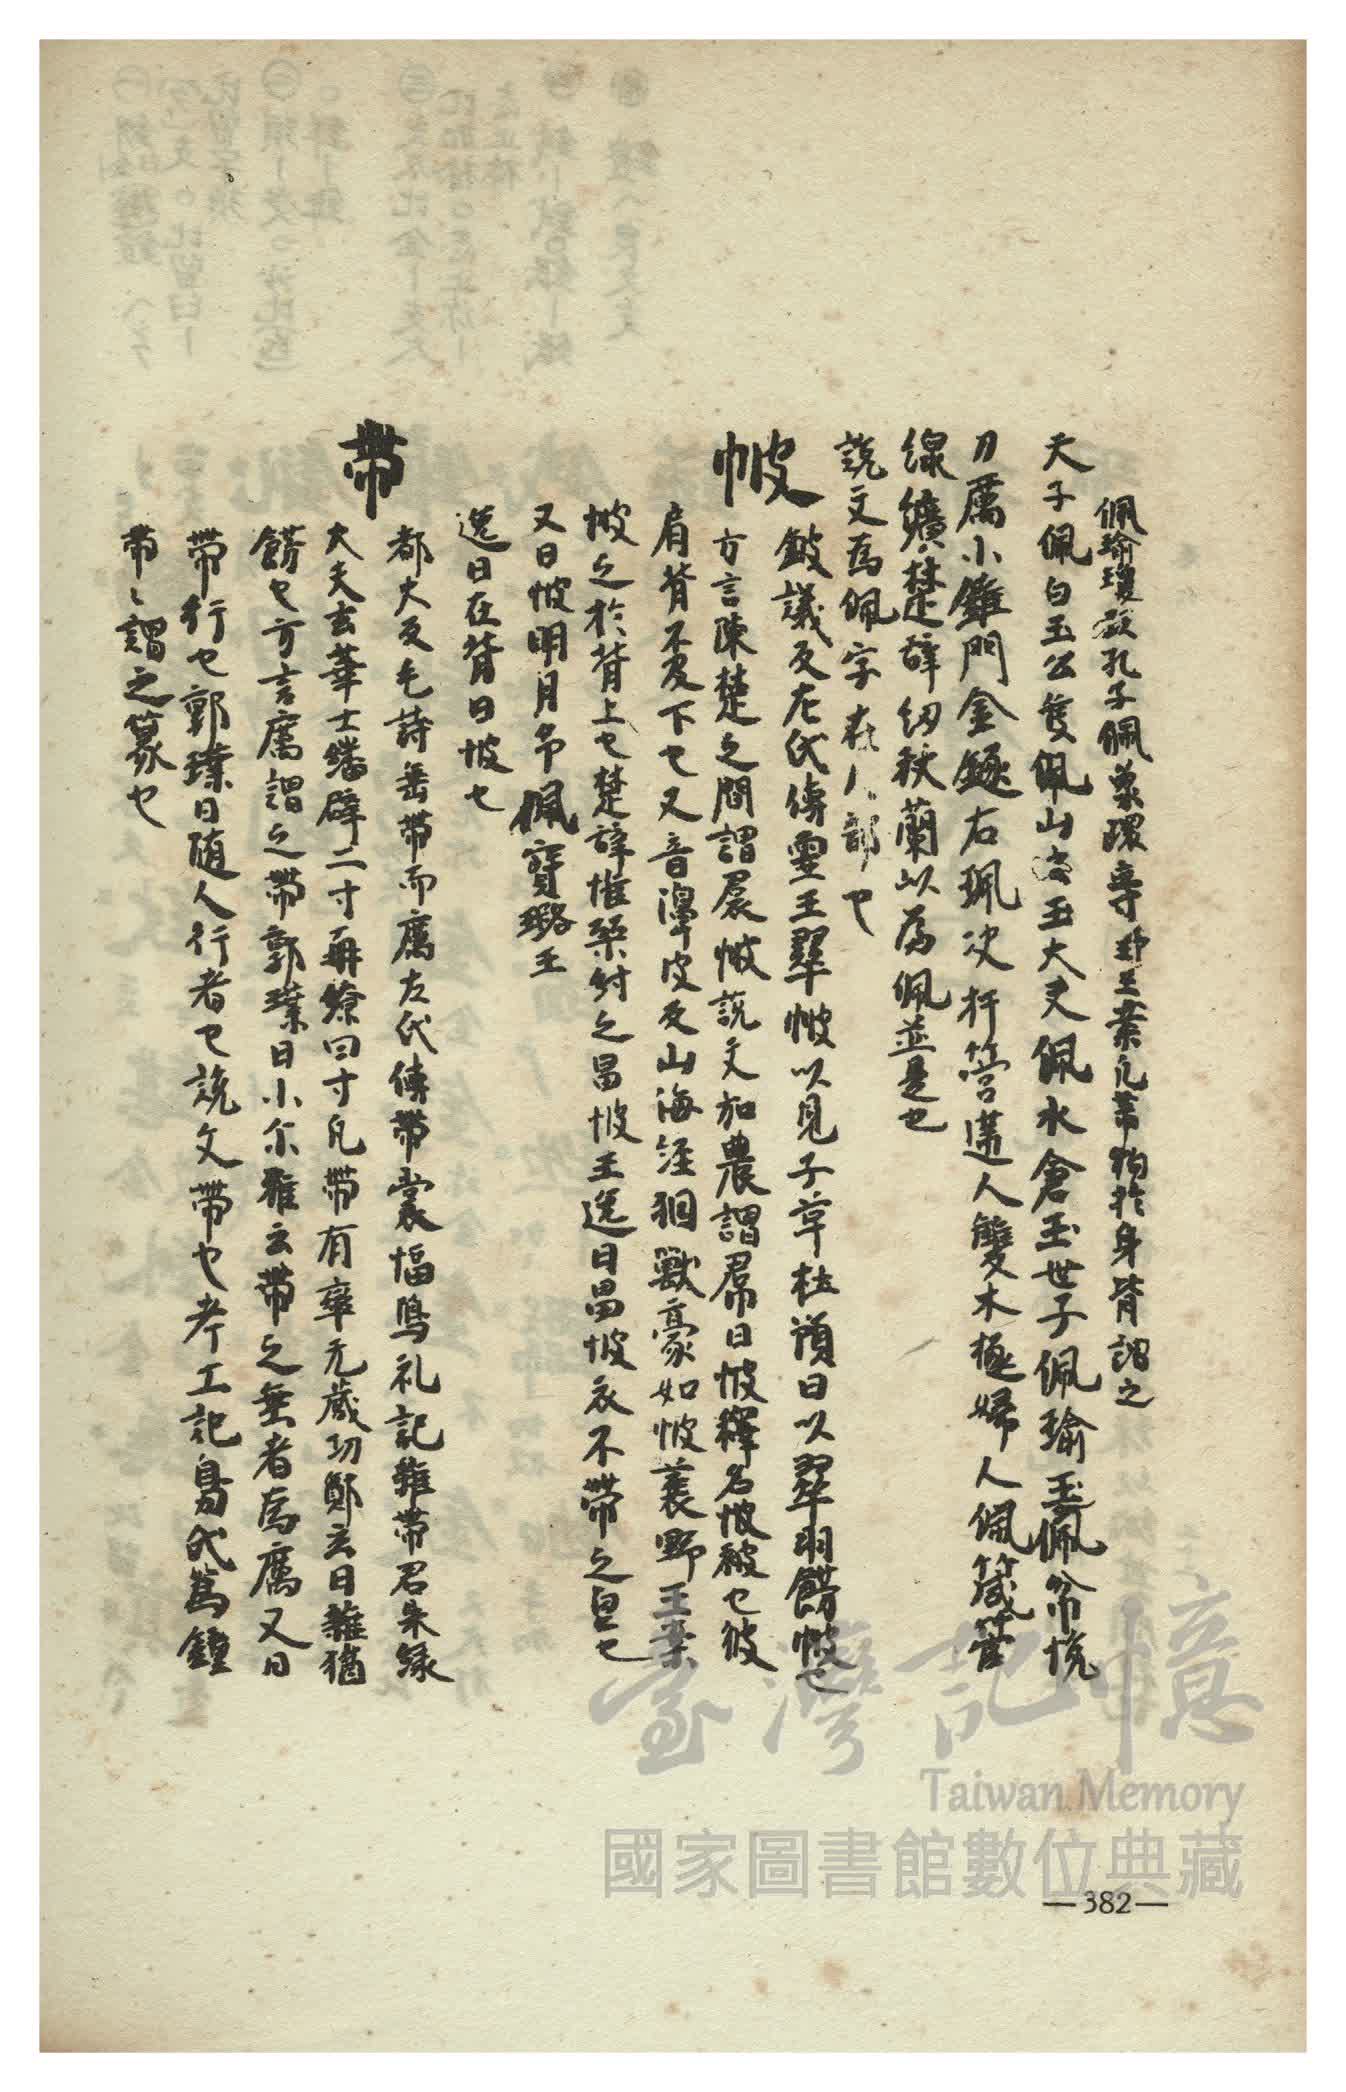 佩瑜瓊故孔子佩象環辛野王案凡帶狗於身背謂之
天子佩白玉公隻佩山玄玉大夫佩水倉玉世子佩瑜玉佩帉帨
刀厲小鑴門金鐩右珮決杆管遰人雙木極婦人佩箴管
線纊楚辞紉秋蘭以為佩並是也
說文為佩字在人部也
帔
鈹議反左氏傳霊王翠帔以見子草杜預曰以翠羽餝帔也
方言陳楚之間謂帬帔說文加農謂帬曰帔釋名帔被也彼
肩背不及下也又音潷皮反山海経狪獸豪如帔蓑野王案
帔之於背上也楚辞惟桀紂之昌帔王逸曰昌帔衣不帶之皃也
又曰帔明月兮佩寶璐王
逸曰在背曰帔也
帶
都大反毛詩垂帶而厲左氏傳帶裳幅舄礼記雜帶君朱緣
大夫玄華士繙辟二寸再繚四寸凡帶有率无葴功鄭玄曰雜猶
餝也方言厲謂之帶郭璞曰小尓雅云帶之垂者為厲又曰
帶行也郭璞曰随人行者也說文帶也考工記鳧氏為鍾
帶〻謂之篆也
臺灣記憶
Taiwan Memory
國家圖書館數位典藏
—382—